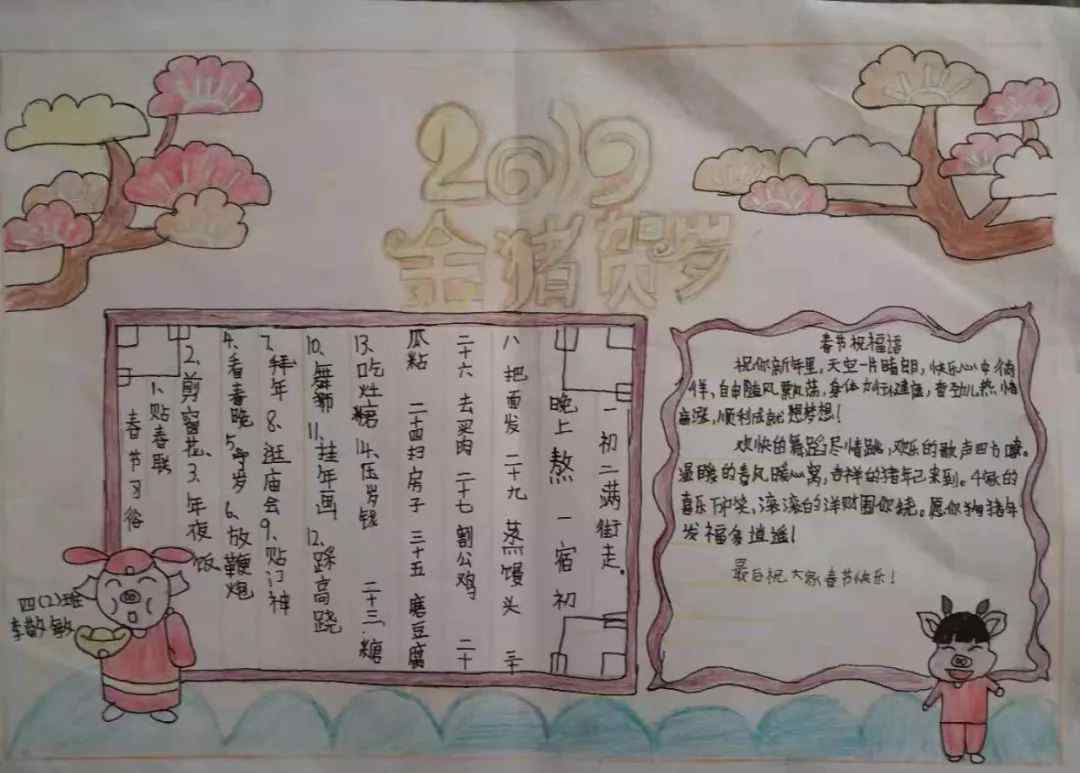 2019
金猪贺岁
春节习俗
1.贴春联
2.剪窗花、3.年夜饭
4.看春晚 5.守岁 6.放鞭炮
7.拜年 8.逛庙会 9.贴门神
10.舞狮 11.挂年画 12.踩高跷
13.吃灶糖 14.压岁钱 二十三.糖
瓜粘 二十四扫房子 三十五 磨豆腐
二十六 去买肉 二十七 割公鸡 二十
八 把面发 二十九 蒸馒头 三十
晚上熬 一宿 初
一初二满街走。
春节祝福语
祝你新年里,天空一片晴朗,快乐心中徜
徉,自由随风飘荡,身体如你健康,工作热情
高涨,顺利成就梦想!
欢快的舞蹈尽情跳,欢乐的歌声四方嘹。
温暖的春风暖心窝,吉祥的猪年已来到。
喜乐下中笑,滚滚的洋财围你绕。愿你猪年
发福多逍遥!
最后祝大家春节快乐!
四(2)班
李敏